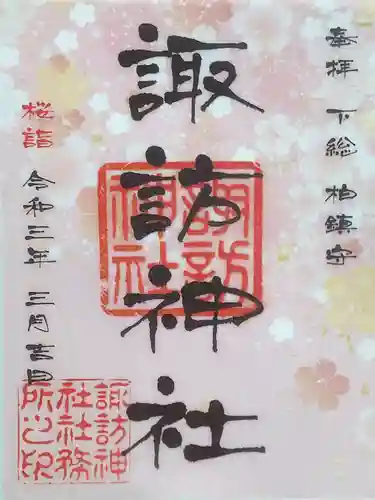 奉拝 下総 柏鎮守
諏訪神社
諏訪神社
桜詣 令和三年 三月吉日
諏訪神
社社務
所之印